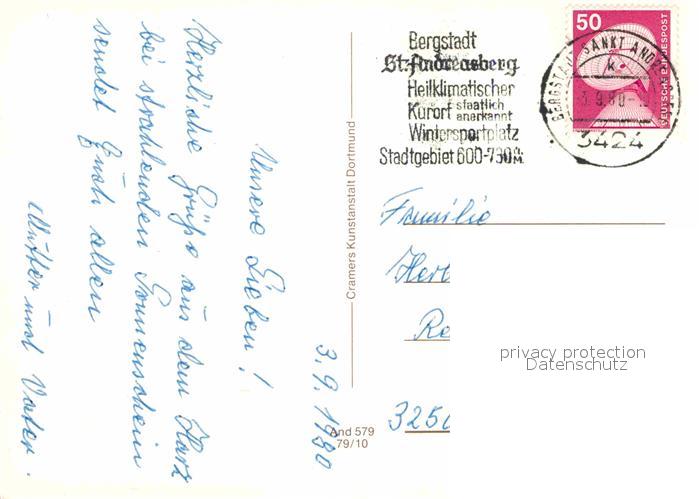 Bergstadt
St. Andreasberg
Heilklimatischer
Kurort staatlich anerkannt
Wintersportplatz
Stadtgebiet 600-730m
50
DEUTSCHE BUNDESPOST
BERGSTADT SANKT ANDR
k
3.9.80
3424
3.9.1980
Unsere Lieben!
Herzliche Grüße aus dem Harz
bei strahlenden Sonnenschein
sendet Euch allen
Mutter und Vater.
Cramers Kunstanstalt Dortmund
And 579
79/10
Familie
Herb
Ro
325
privacy protection
Datenschutz